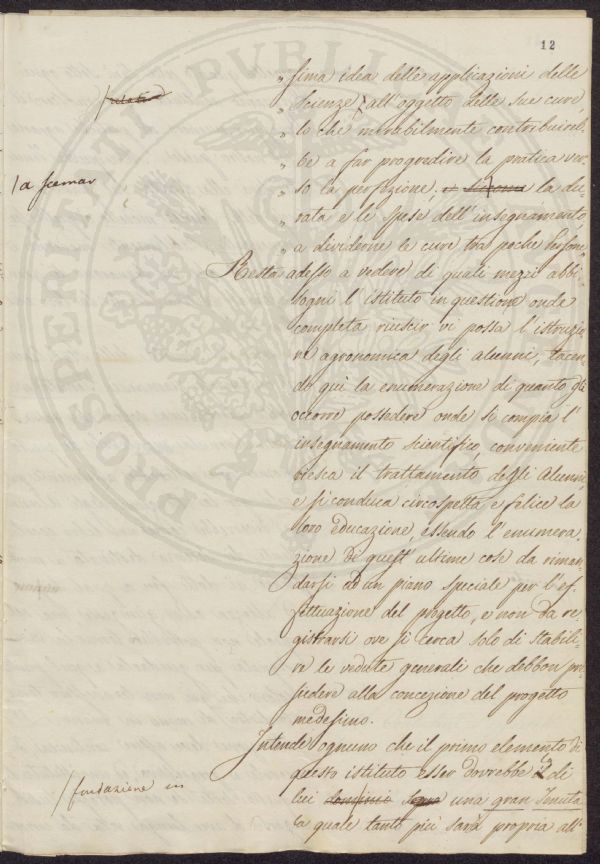 12
„ sima idea delle applicazioni delle
„ Scienze / all'oggetto delle sue cure
„ lo che mirabilmente contribuireb-
„ be a far progredire la pratica ver-
/a scemar
„ so la perfezione, la du-
„ rata e le spese dell'insegnamento
„ a dividerne le cure tra poche persone„
Resta adesso a vedere di quali mezzi abbi-
sogni l'istituto in questione onde
completa riescir vi possa l'istruzio-
ne agronomica degli alunni, tacen-
do qui la enumerazione di quanto gli
occorre possedere onde si compia l'
insegnamento scientifico, conveniente
riesca il trattamento degli Alunni,
e si conduca circospetta e felice la
loro educazione, essendo l'enumera-
zione di quest'ultime cose da riman-
darsi ad un piano speciale per l'ef-
fettuazione del progetto, e non da re-
gistrarsi ove si cerca solo di stabili-
re le vedute generali che debbon pre-
siedere alla concezione del progetto
medesimo.
Intende ognuno che il primo elemento di
questo istituto esser dovrebbe di
/fondazione
lui una gran Tenuta
la quale tanto più sarà propria all'
PROSPERITATI PUBLICAE